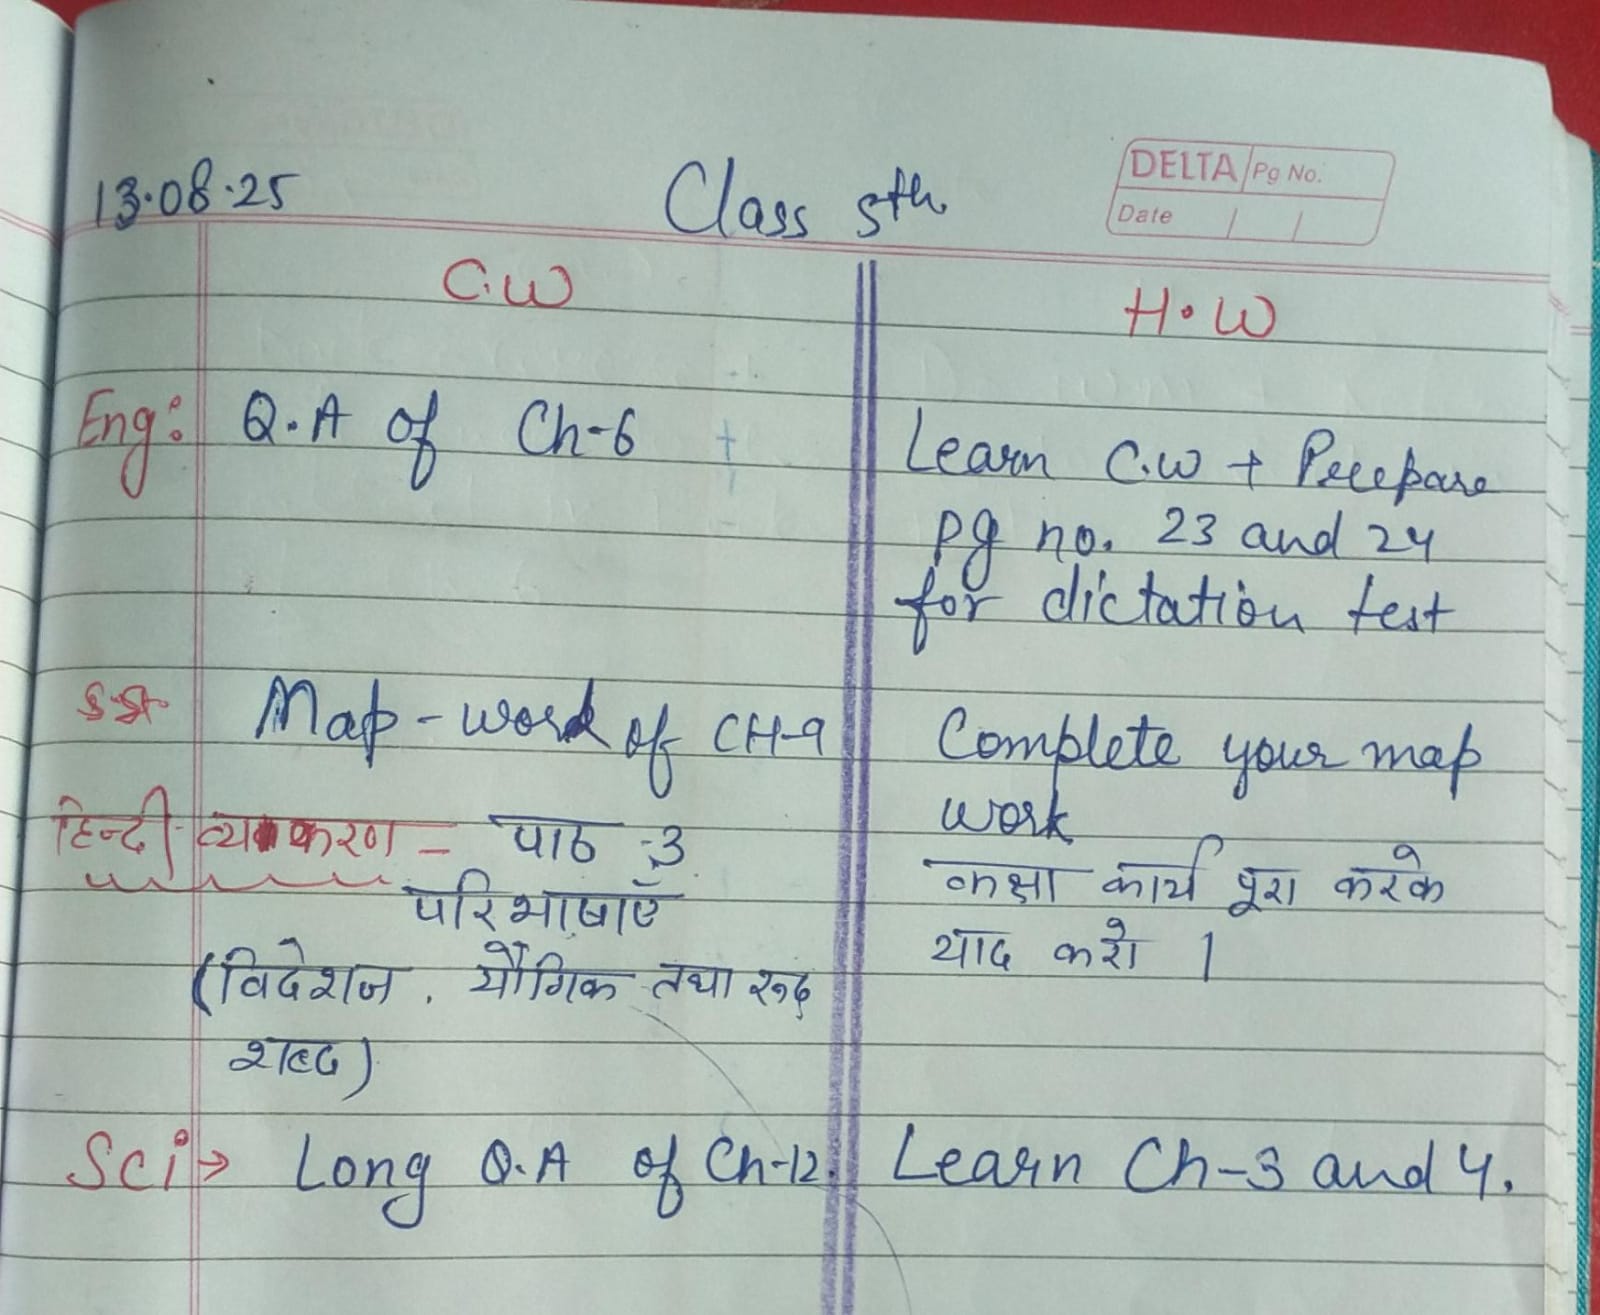 DELTA Pg No.
Date
13.08.25 Class 5th
C.W H.W
Eng: Q.A of Ch-6
Learn C.W + Preepare
pg no. 23 and 24
for dictation test
S.St Map-work of CH-9
Complete your map
work
हिन्दी व्याकरण - पाठ -3
परिभाषाएँ
(विदेशज, यौगिक तथा रूढ़
शब्द)
कक्षा कार्य पूरा करके
याद करो ।
Sci → Long Q.A of Ch-12. Learn Ch-3 and 4.